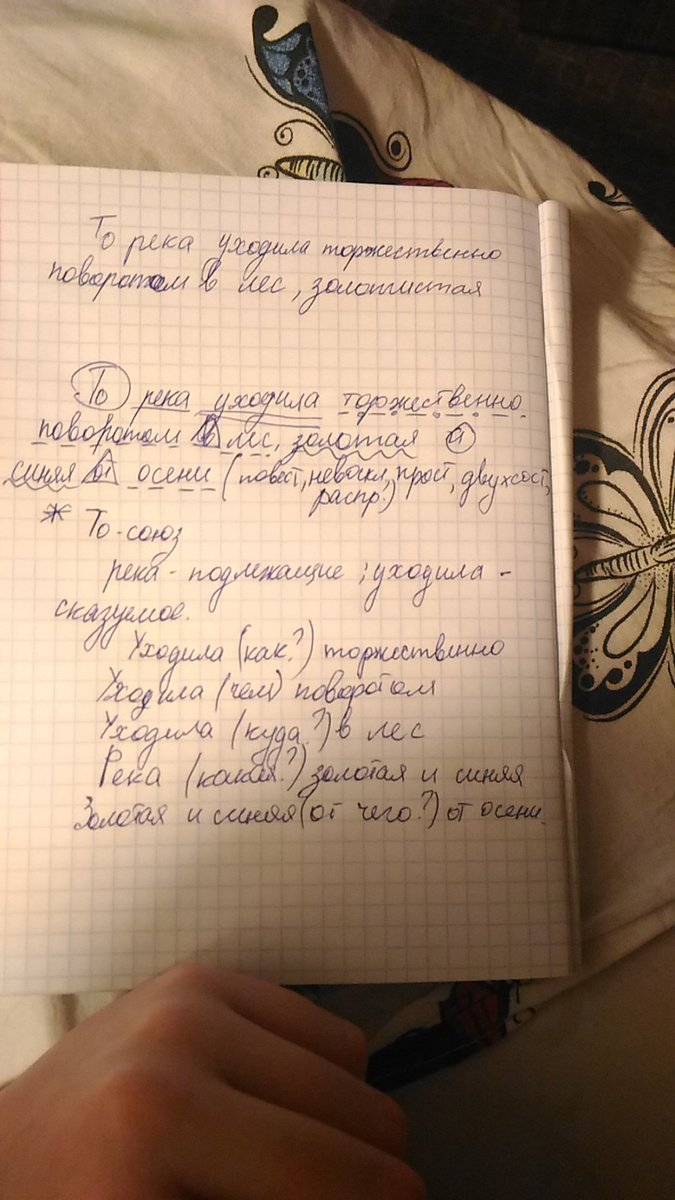 То река уходила торжественно
поворотом в лес, золотистая
То река уходила торжественно
поворотом в лес, золотая и
синяя от осени (повест, невоскл, прост, двухсост,
распр.)
* То-союз
река - подлежащие ; уходила -
сказуемое.
Уходила (как?) торжественно
Уходила (чем) поворотом
Уходила (куда?) в лес
Река (какая?) золотая и синяя
Золотая и синяя (от чего?) от осени.